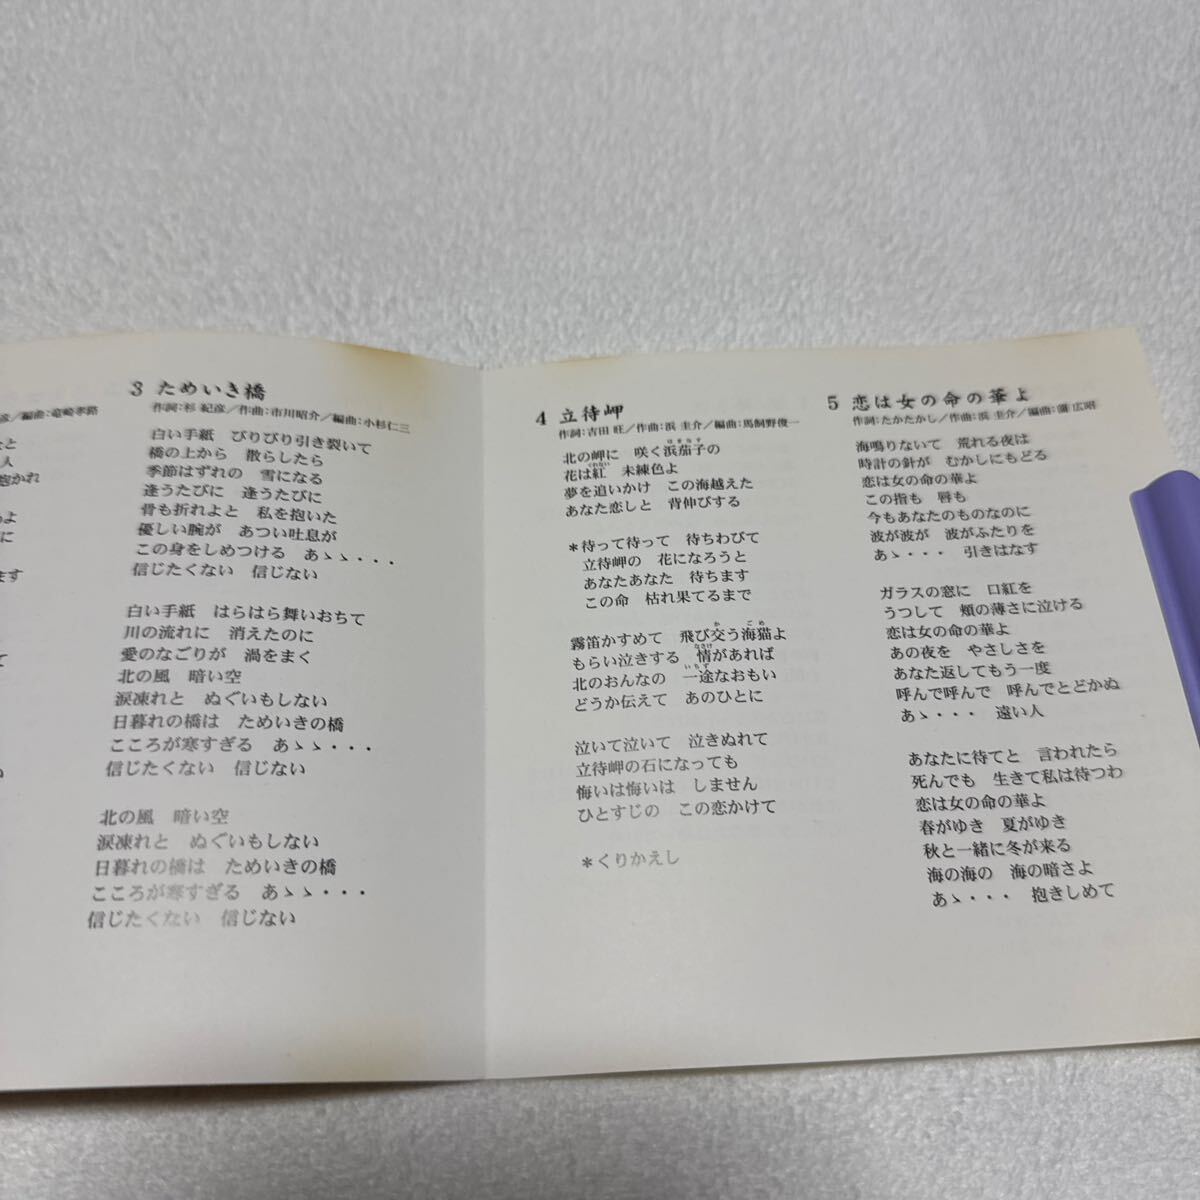 彦／編曲：竜崎孝路
と
人
抱かれ
よ
に
ます
て
3 ためいき橋
作詞：杉 紀彦／作曲：市川昭介／編曲：小杉仁三
白い手紙 びりびり引き裂いて
橋の上から 散らしたら
季節はずれの 雪になる
逢うたびに 逢うたびに
骨も折れよと 私を抱いた
優しい腕が あつい吐息が
この身をしめつける あゝゝ・・・
信じたくない 信じない
白い手紙 はらはら舞いおちて
川の流れに 消えたのに
愛のなごりが 渦をまく
北の風 暗い空
涙凍れと ぬぐいもしない
日暮れの橋は ためいきの橋
こころが寒すぎる あゝゝ・・・
信じたくない 信じない
北の風 暗い空
涙凍れと ぬぐいもしない
日暮れの橋は ためいきの橋
こころが寒すぎる あゝゝ・・・
信じたくない 信じない
4 立待岬
作詞：吉田 旺／作曲：浜 圭介／編曲：馬飼野俊一
北の岬に 咲く浜茄子の
花は紅 未練色よ
夢を追いかけ この海越えた
あなた恋しと 背伸びする
＊待って待って 待ちわびて
立待岬の 花になろうと
あなたあなた 待ちます
この命 枯れ果てるまで
霧笛かすめて 飛び交う海猫よ
もらい泣きする 情があれば
北のおんなの 一途なおもい
どうか伝えて あのひとに
泣いて泣いて 泣きぬれて
立待岬の石になっても
悔いは悔いは しません
ひとすじの この恋かけて
＊くりかえし
5 恋は女の命の華よ
作詞：たかたかし／作曲：浜 圭介／編曲： 広昭
海鳴りないて 荒れる夜は
時計の針が むかしにもどる
恋は女の命の華よ
この指も 唇も
今もあなたのものなのに
波が波が 波がふたりを
あゝ・・・ 引きはなす
ガラスの窓に 口紅を
うつして 頬の薄さに泣ける
恋は女の命の華よ
あの夜を やさしさを
あなた返してもう一度
呼んで呼んで 呼んでとどかぬ
あゝ・・・ 遠い人
あなたに待てと 言われたら
死んでも 生きて私は待つわ
恋は女の命の華よ
春がゆき 夏がゆき
秋と一緒に冬が来る
海の海の 海の暗さよ
あゝ・・・ 抱きしめて